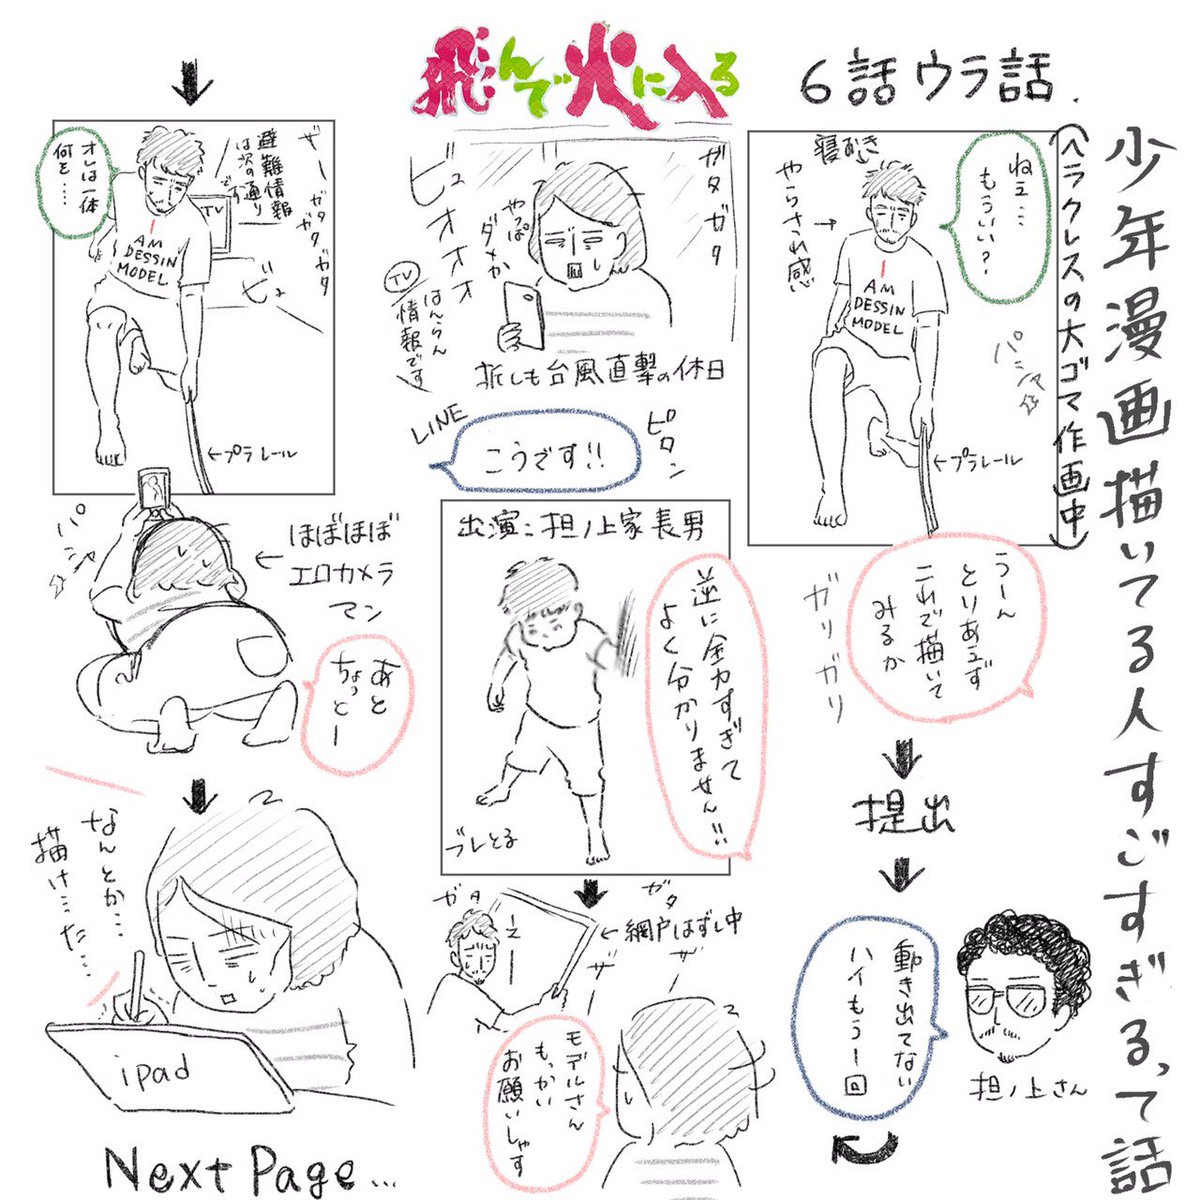 飛んで火に入る
6話ウラ話
少年漫画描いてる人すごすぎるって話
(ヘラクレスの大ゴマ作画中)
ねぇ…
もういい?
寝おき
やらされ感
I
AM
DESSIN
MODEL
パシャ
←プラレール
うーん
とりあえず
これで描いて
みるか
ガリガリ
提出
動き出てない
ハイもう一回
担ノ上さん
ガタガタ
ビュオオオ
やっぱ
ダメか
TV
はんらん
情報です
折しも台風直撃の休日
LINE
ピロン
こうです!!
出演:担ノ上家長男
逆に全力すぎて
よく分かりません!!
ブレとる
ガタ
ガタ
えー
←網戸はずし中
モデルさん
もっかい
お願いしゃす
オレは一体
何を…
避難情報
は次の通り
です
TV
ガタガタガタ
I
AM
DESSIN
MODEL
←プラレール
パシャ
←ほぼほぼ
エロカメラ
マン
あと
ちょっとー
なんとか…
描け…た…
ipad
Next Page...